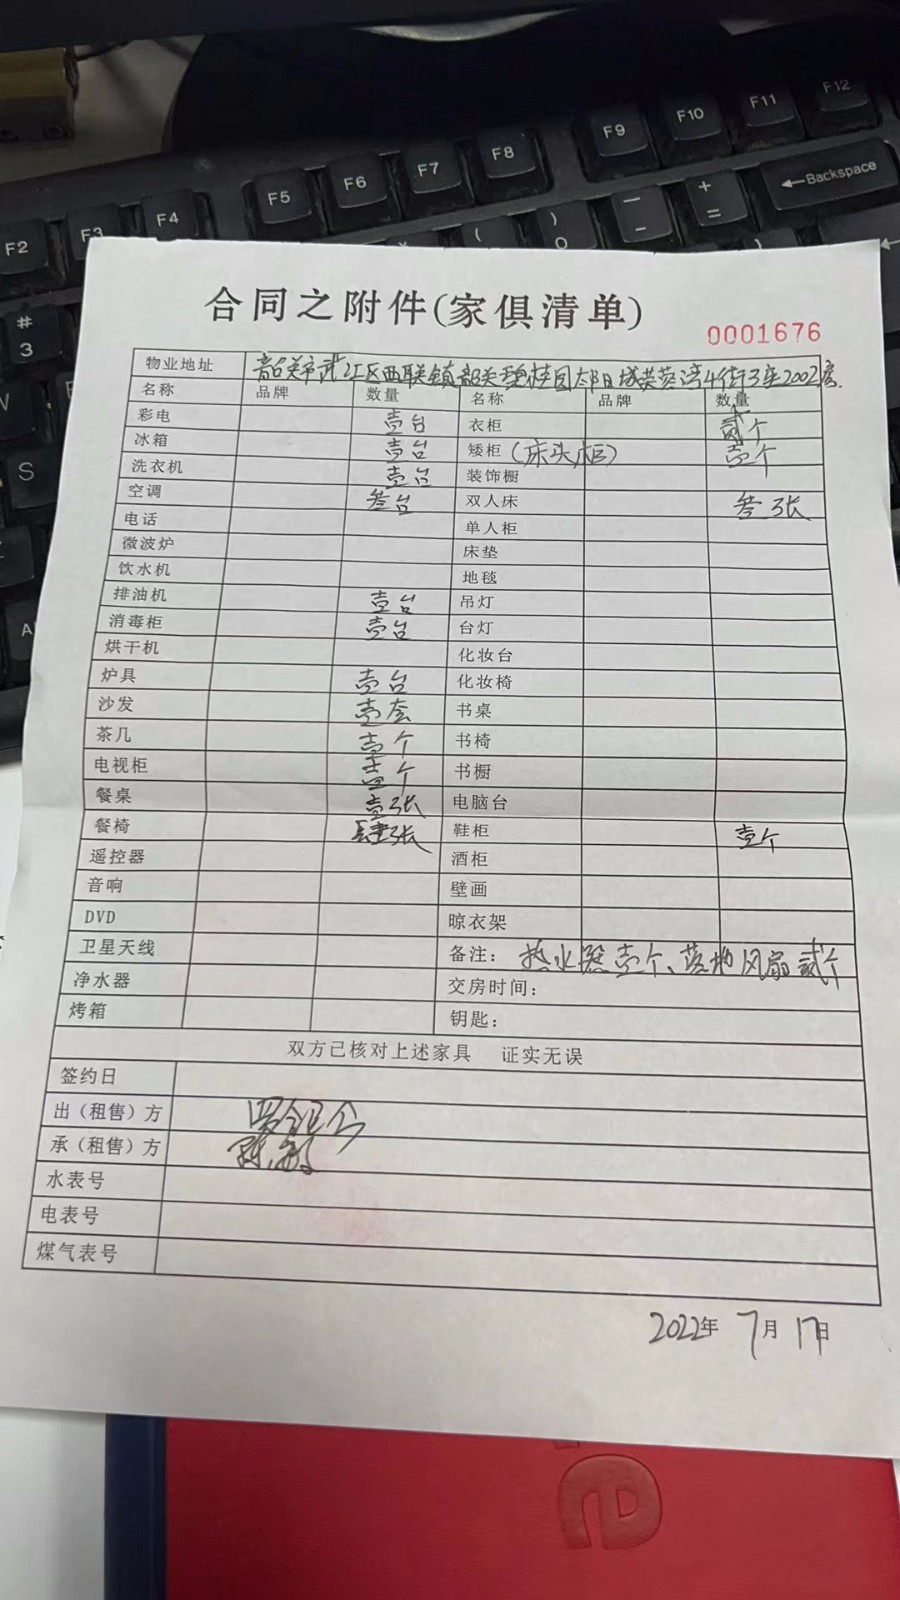 F2 F3 F4 F5 F6 F7 F8 F9 F10 F11 F12
←Backspace
合同之附件(家俱清单)
0001676
物业地址 韶关市武江区西联镇韶关碧桂园太阳城芙蓉湾4街3座2002房.
名称 品牌 数量 名称 品牌 数量
彩电 壹台 衣柜 贰个
冰箱 壹台 矮柜(床头柜) 壹个
洗衣机 壹台 装饰橱
空调 叁台 双人床 叁张
电话 单人柜
微波炉 床垫
饮水机 地毯
排油机 壹台 吊灯
消毒柜 壹台 台灯
烘干机 化妆台
炉具 壹台 化妆椅
沙发 壹套 书桌
茶几 壹个 书椅
电视柜 壹个 书橱
餐桌 壹张 电脑台
餐椅 肆张 鞋柜 壹个
遥控器 酒柜
音响 壁画
DVD 晾衣架
卫星天线 备注: 热水器壹个、落地风扇贰个
净水器 交房时间:
烤箱 钥匙:
双方已核对上述家具 证实无误
签约日
出(租售)方
承(租售)方
水表号
电表号
煤气表号
2022年 7月17日
e